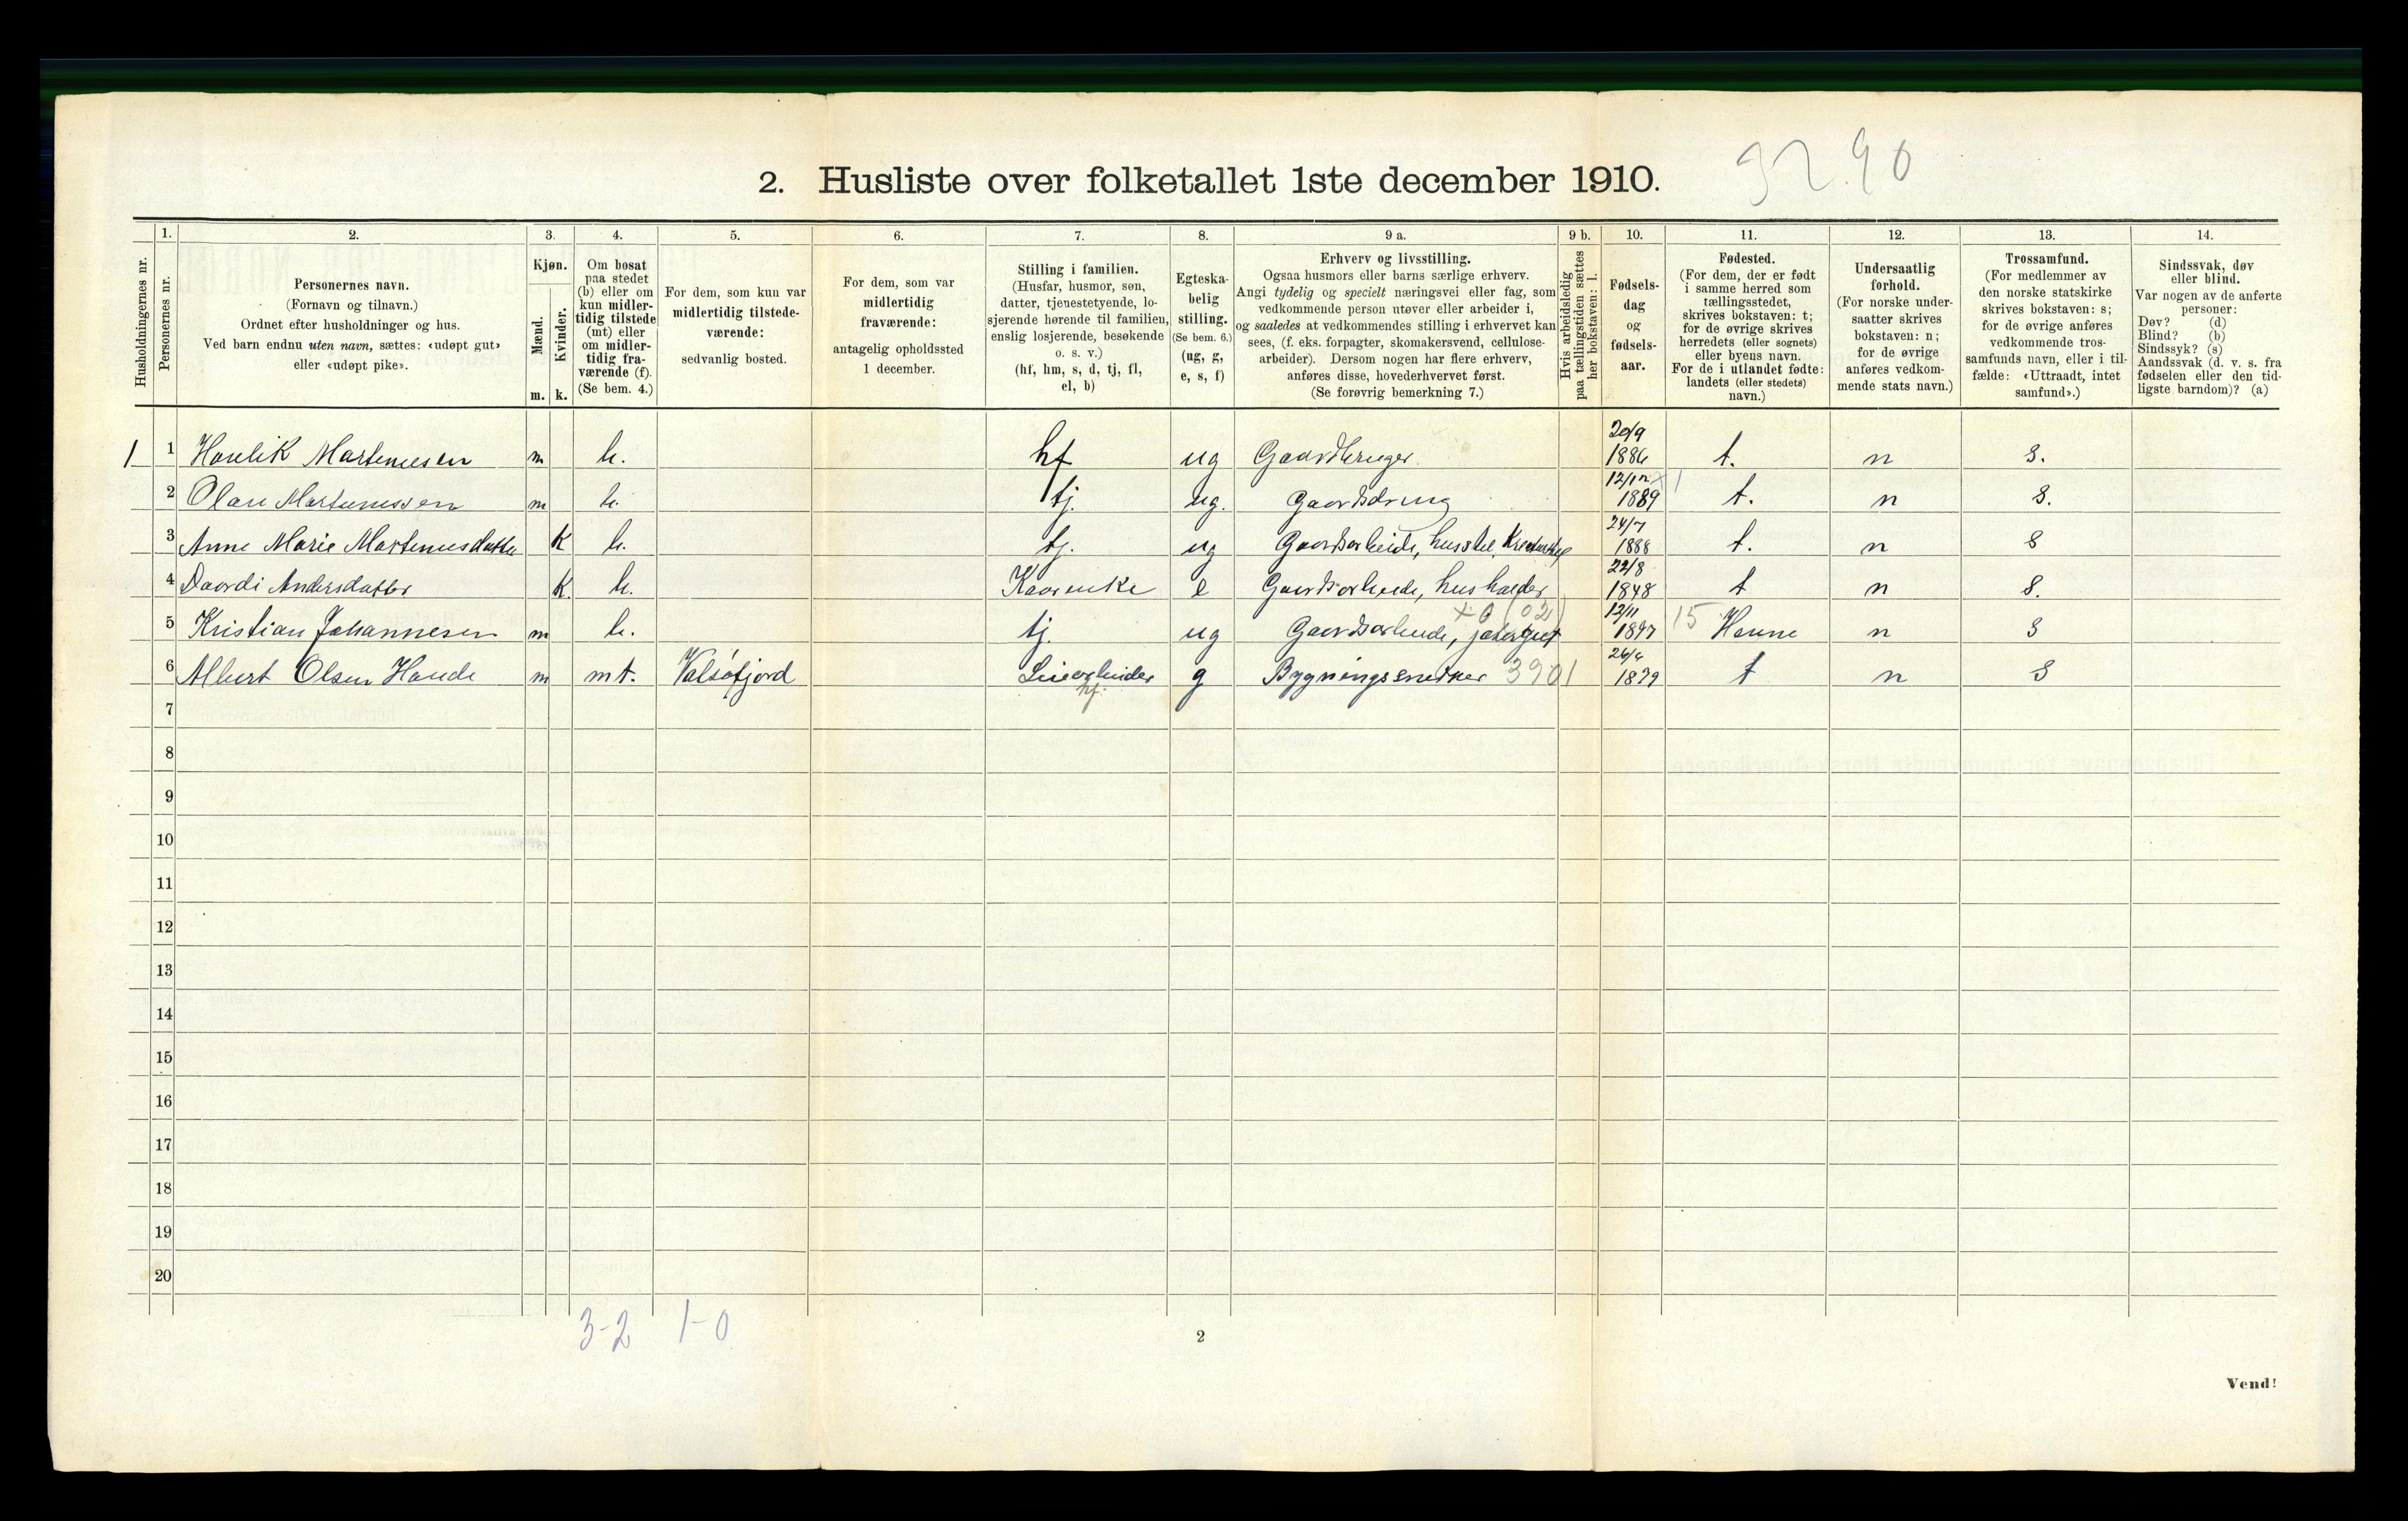 2. Husliste over folketallet 1ste december 1910.
92.90
Husholdningernes nr.
1.
Personernes nr.
2.
Personernes navn.
(Fornavn og tilnavn.)
Ordnet efter husholdninger og hus.
Ved barn endnu uten navn, sættes: «udøpt gut»
eller «udøpt pike».
3.
Kjøn.
Mænd.
Kvinder.
m. k.
4.
Om bosat
paa stedet
(b) eller om
kun midler-
tidig tilstede
(mt) eller
om midler-
tidig fra-
værende (f).
(Se bem. 4.)
5.
For dem, som kun var
midlertidig tilstede-
værende:
sedvanlig bosted.
6.
For dem, som var
midlertidig
fraværende:
antagelig opholdssted
1 december.
7.
Stilling i familien.
(Husfar, husmor, søn,
datter, tjenestetyende, lo-
sjerende hørende til familien,
enslig losjerende, besøkende
o. s. v.)
(hf, hm, s, d, tj, fl,
el, b)
8.
Egteska-
belig
stilling.
(Se bem. 6.)
(ug, g,
e, s, f)
9 a.
Erhverv og livsstilling.
Ogsaa husmors eller barns særlige erhverv.
Angi tydelig og specielt næringsvei eller fag, som
vedkommende person utøver eller arbeider i,
og saaledes at vedkommendes stilling i erhvervet kan
sees, (f. eks. forpagter, skomakersvend, cellulose-
arbeider). Dersom nogen har flere erhverv,
anføres disse, hovederhvervet først.
(Se forøvrig bemerkning 7.)
9 b.
Hvis arbeidsledig
paa tællingstiden sættes
her bokstaven: l.
10.
Fødsels-
dag
og
fødsels-
aar.
11.
Fødested.
(For dem, der er født
i samme herred som
tællingsstedet,
skrives bokstaven: t;
for de øvrige skrives
herredets (eller sognets)
eller byens navn.
For de i utlandet fødte:
landets (eller stedets)
navn.)
12.
Undersaatlig
forhold.
(For norske under-
saatter skrives
bokstaven: n;
for de øvrige
anføres vedkom-
mende stats navn.)
13.
Trossamfund.
(For medlemmer av
den norske statskirke
skrives bokstaven: s;
for de øvrige anføres
vedkommende tros-
samfunds navn, eller i til-
fælde: «Uttraadt, intet
samfund».)
14.
Sindssvak, døv
eller blind.
Var nogen av de anførte
personer:
Døv? (d)
Blind? (b)
Sindssyk? (s)
Aandssvak (d. v. s. fra
fødselen eller den tid-
ligste barndom)? (a)
1 1 Martenussen m b. hf ug Gaardbruger 20/9 1886 t. n s.
2 Martenussen m b. tj. ug. Gaardsdreng 12/12 1889 t. n s.
3 Anne Marie Martenusdatter k b. tj. ug Gaardsarbeide, husstel, 24/7 1888 t. n s
4 Andersdatter k. b. Kaarenke e Gaardsarbeide, husholder 22/8 1848 t n s.
5 Kristian Johannesen m b. tj. ug Gaardsarbeide, jætergut 12/11 1897 15 n s
6 Albert Olsen m mt. Valsøfjord hf. g Bygningssnedker 3901 1879 t n s
7
8
9
10
11
12
13
14
15
16
17
18
19
20
3-2 1-0
2
Vend!